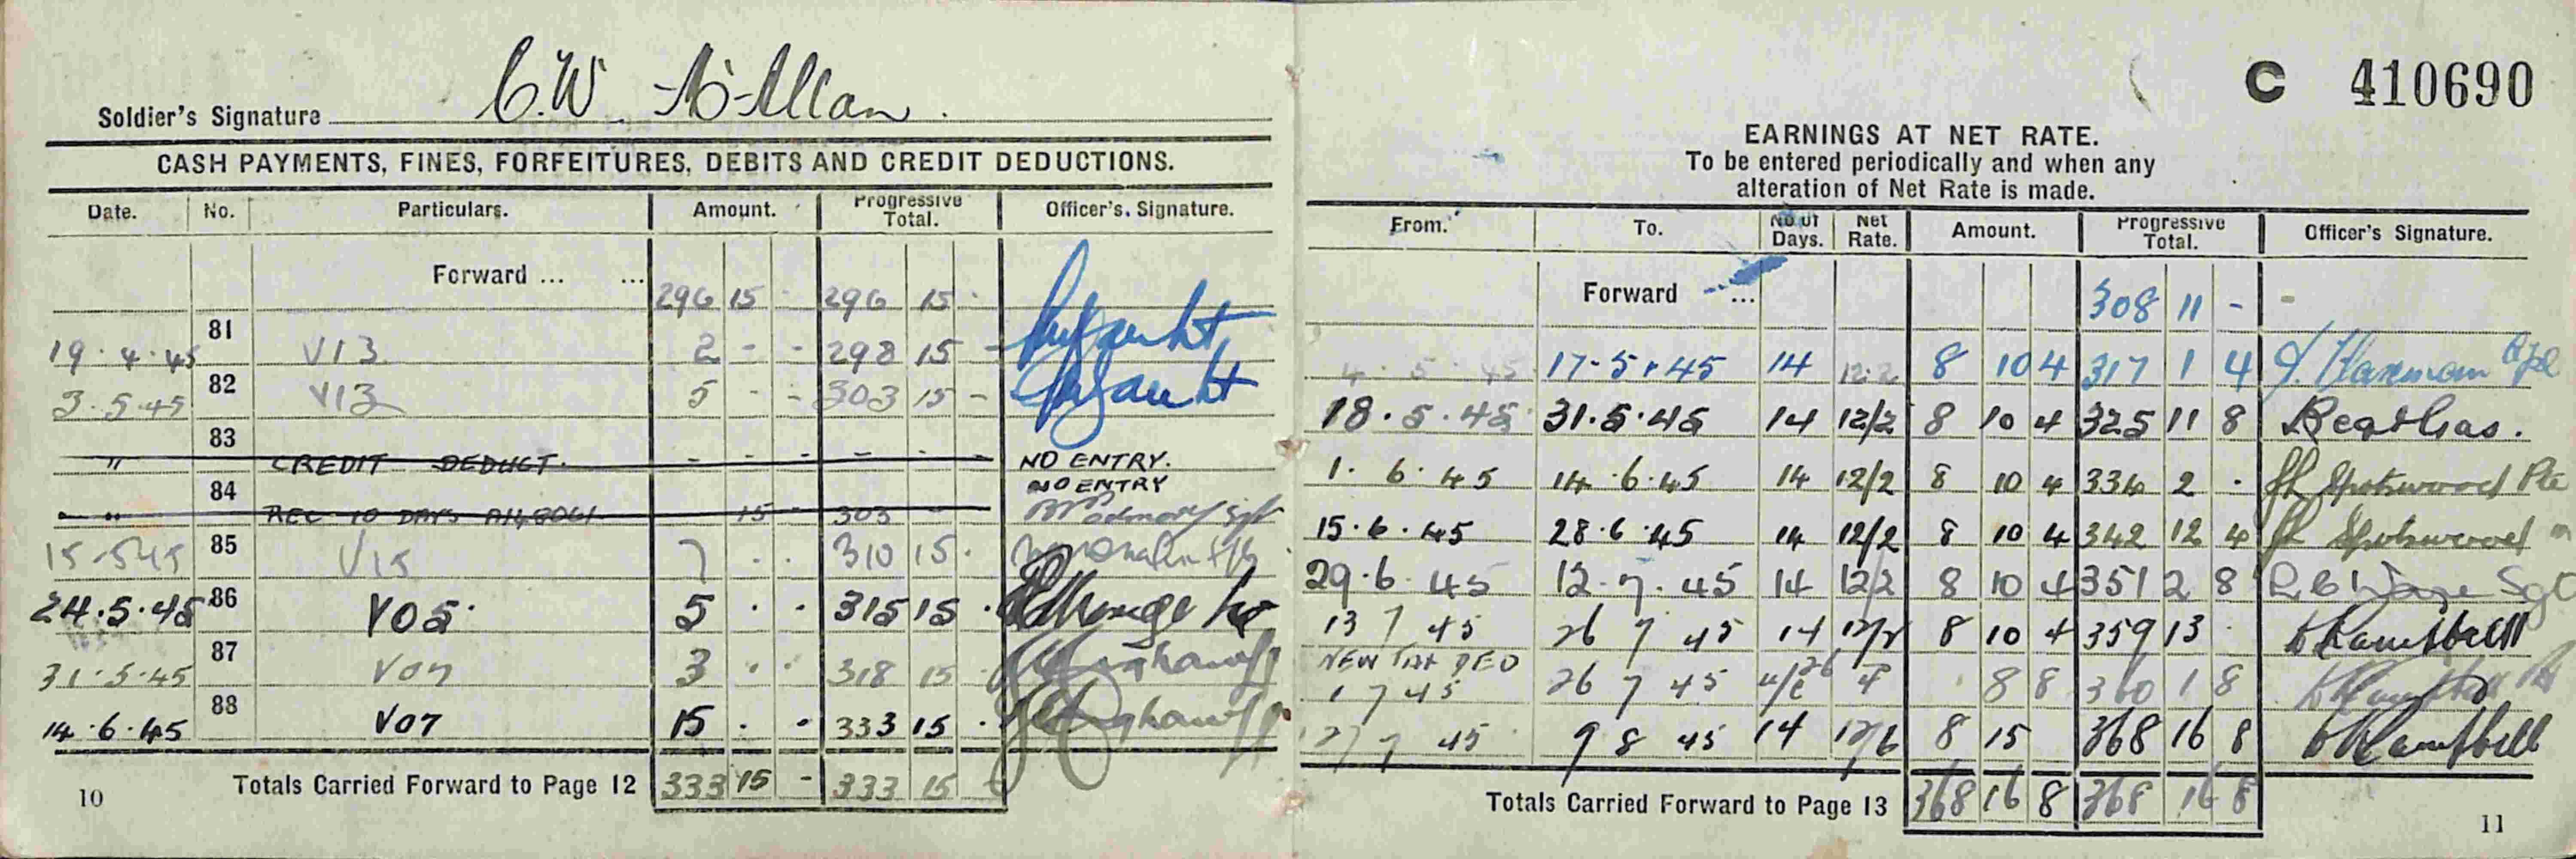 C 410690
Soldier's Signature C.W. McAllan.
CASH PAYMENTS, FINES, FORFEITURES, DEBITS AND CREDIT DEDUCTIONS.
Date. No. Particulars. Amount. Progressive Total. Officer's. Signature.
Forward ... ... 296 15 - 296 15 -
19.4.45 81 V13 2 - - 298 15 -
3.5.45 82 V13 5 - - 303 15 -
" 83 CREDIT DEDUCT. - - - - - - NO ENTRY.
" 84 REC 10 DAYS 15 - 303 - NO ENTRY
15.5.45 85 V15 7 . . 310 15 .
24.5.45 86 V05. 5 . . 315 15 .
31.5.45 87 V07 3 . . 318 15 .
14.6.45 88 V07 15 . . 333 15 .
Totals Carried Forward to Page 12 333 15 - 333 15 -
10
EARNINGS AT NET RATE.
To be entered periodically and when any
alteration of Net Rate is made.
From. To. No of Days. Net Rate. Amount. Progressive Total. Officer's Signature.
Forward ... 308 11 -
4.5.45 17.5.45 14 12.2 8 10 4 317 1 4
18.5.45 31.5.45 14 12/2 8 10 4 325 11 8
1.6.45 14.6.45 14 12/2 8 10 4 334 2 . Spotswood Pte
15.6.45 28.6.45 14 12/2 8 10 4 342 12 4 Spotswood
29.6.45 12.7.45 14 12/2 8 10 4 351 2 8 Sgt
13 7 45 26 7 45 14 12/2 8 10 4 359 13 . Campbell
NEW TAX DED
1 7 45 26 7 45 26 4 8 8 360 1 8 Campbell
27 7 45 9 8 45 14 12/6 8 15 368 16 8 Campbell
Totals Carried Forward to Page 13 368 16 8 368 16 8
11